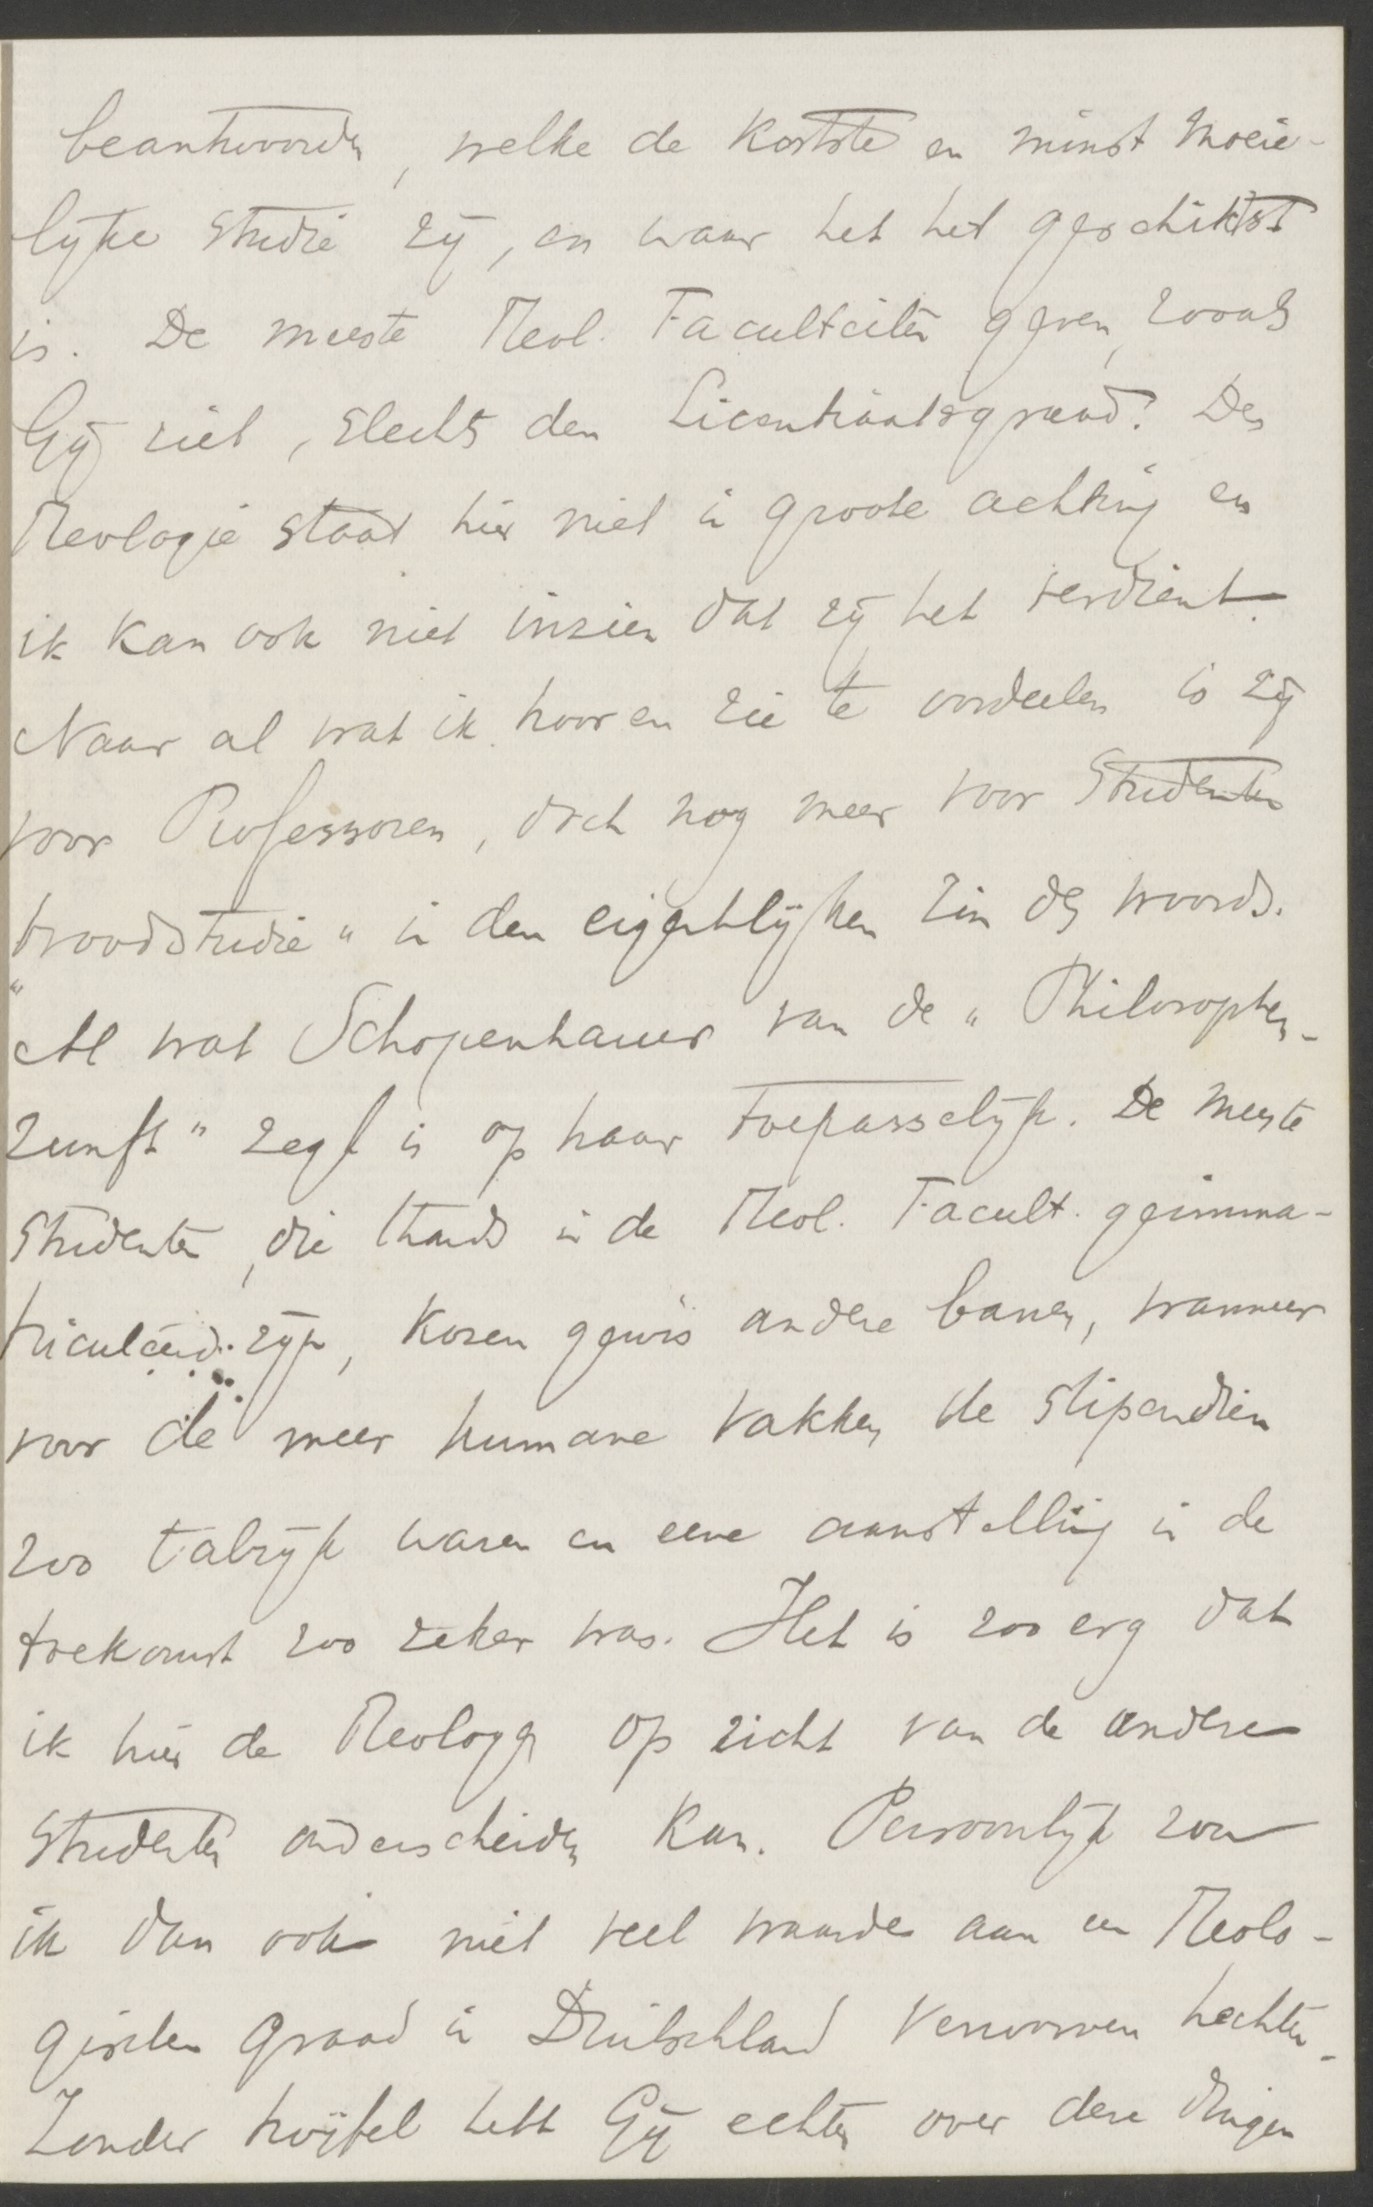 beantwoorden, welke de kortste en minst moeie-
lijke studie zij, en waar het het geschiktst
is. De meeste Theol. Faculteiten geven, zooals
Gij ziet, slechts den Licentiaatsgraad. De
Theologie staat hier niet in groote achting en
ik kan ook niet inzien dat zij het verdient.
Naar al wat ik hoor en zie te oordeelen is zij
voor Professoren, doch nog meer voor Studenten
broodstudie" in den eigentlijken zin des woords.
"Al wat Schopenhauer van de "Philosophen-
zunft" zegt is op haar toepasselijk. De meeste
studenten, die thans in de Theol. Facult. geimma-
triculeerd zijn, kozen gewis andere banen, wanneer
voor de meer humane vakken de stipendien
zoo talrijk waren en eene aanstelling in de
toekomst zoo zeker was. Het is zoo erg dat
ik hier de Theologen op zicht van de andere
studenten onderscheiden kan. Persoonlijk zou
ik dan ook niet veel waarde aan een Theolo-
gischen graad in Duitschland verworven hechten.
Zonder twijfel hebt Gij echter over deze dingen